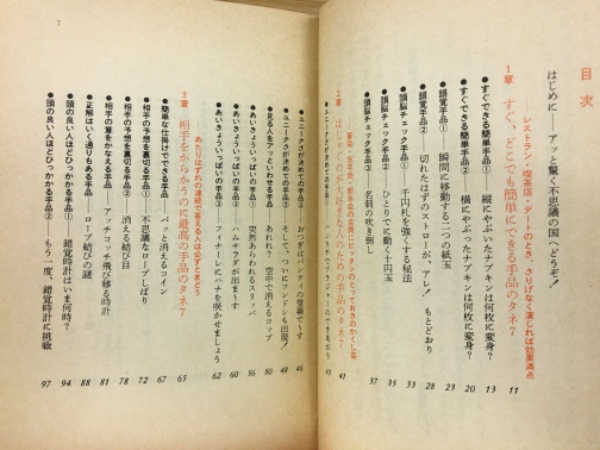 目次
はじめに── アッと驚く不思議の国へどうぞ!
レストラン・喫茶店・デートのとき、さりげなく演じれば効果満点
1章 すぐ、どこでも簡単にできる手品のタネ7 11
●すぐできる簡単手品① 縦にやぶいたナプキンは何枚に変身? 13
●すぐできる簡単手品② 横にやぶったナプキンは何枚に変身? 20
●錯覚手品① 瞬間に移動する二つの紙玉 23
●錯覚手品② 切れたはずのストローが、アレ! もとどおり 28
●頭脳チェック手品① 千円札を強くする秘法 33
●頭脳チェック手品② ひとりでに動く十円玉 35
●頭脳チェック手品③ 名刺の吹き倒し 37
2章 はしゃぐのが大好きな人のための手品のタネ7 41
●ユニークさが決めての手品①
●ユニークさが決めての手品② おつぎはパンティの登場で〜す 46
●ユニークさが決めての手品③ そして、ついにフンドシも出現! 48
●見る人をアッといわせる手品 あれれ? 空中で消えるコップ 50
●あいきょういっぱいの手品① 突然あらわれるスリッパ 56
●あいきょういっぱいの手品② ハムサラダが出ま〜す 60
●あいきょういっぱいの手品③ フィナーレにハナを咲かせましょう 62
あたりはずれの連続で答える人は必ずと惑どう
3章 相手をからかうのに最高の手品のタネ7 65
●簡単な仕掛けでできる手品 パッと消えるコイン 67
●相手の予想を裏切る手品① 不思議なロープしばり 72
●相手の予想を裏切る手品② 消える結び目 78
●相手の意をかなえる手品 アッチコッチ飛び移る時計 81
●正解はいく通りもある手品 ロープ結びの謎 88
●頭の良い人ほどひっかかる手品① 錯覚時計はいま何時? 94
●頭の良い人ほどひっかかる手品② もう一度、錯覚時計に挑戦 97
7